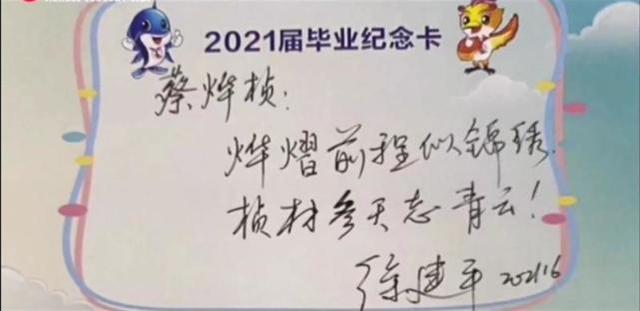 2021届毕业纪念卡
蔡烨桢：
烨熠前程似锦琇，
桢材参天志青云！
徐建平 2021.6